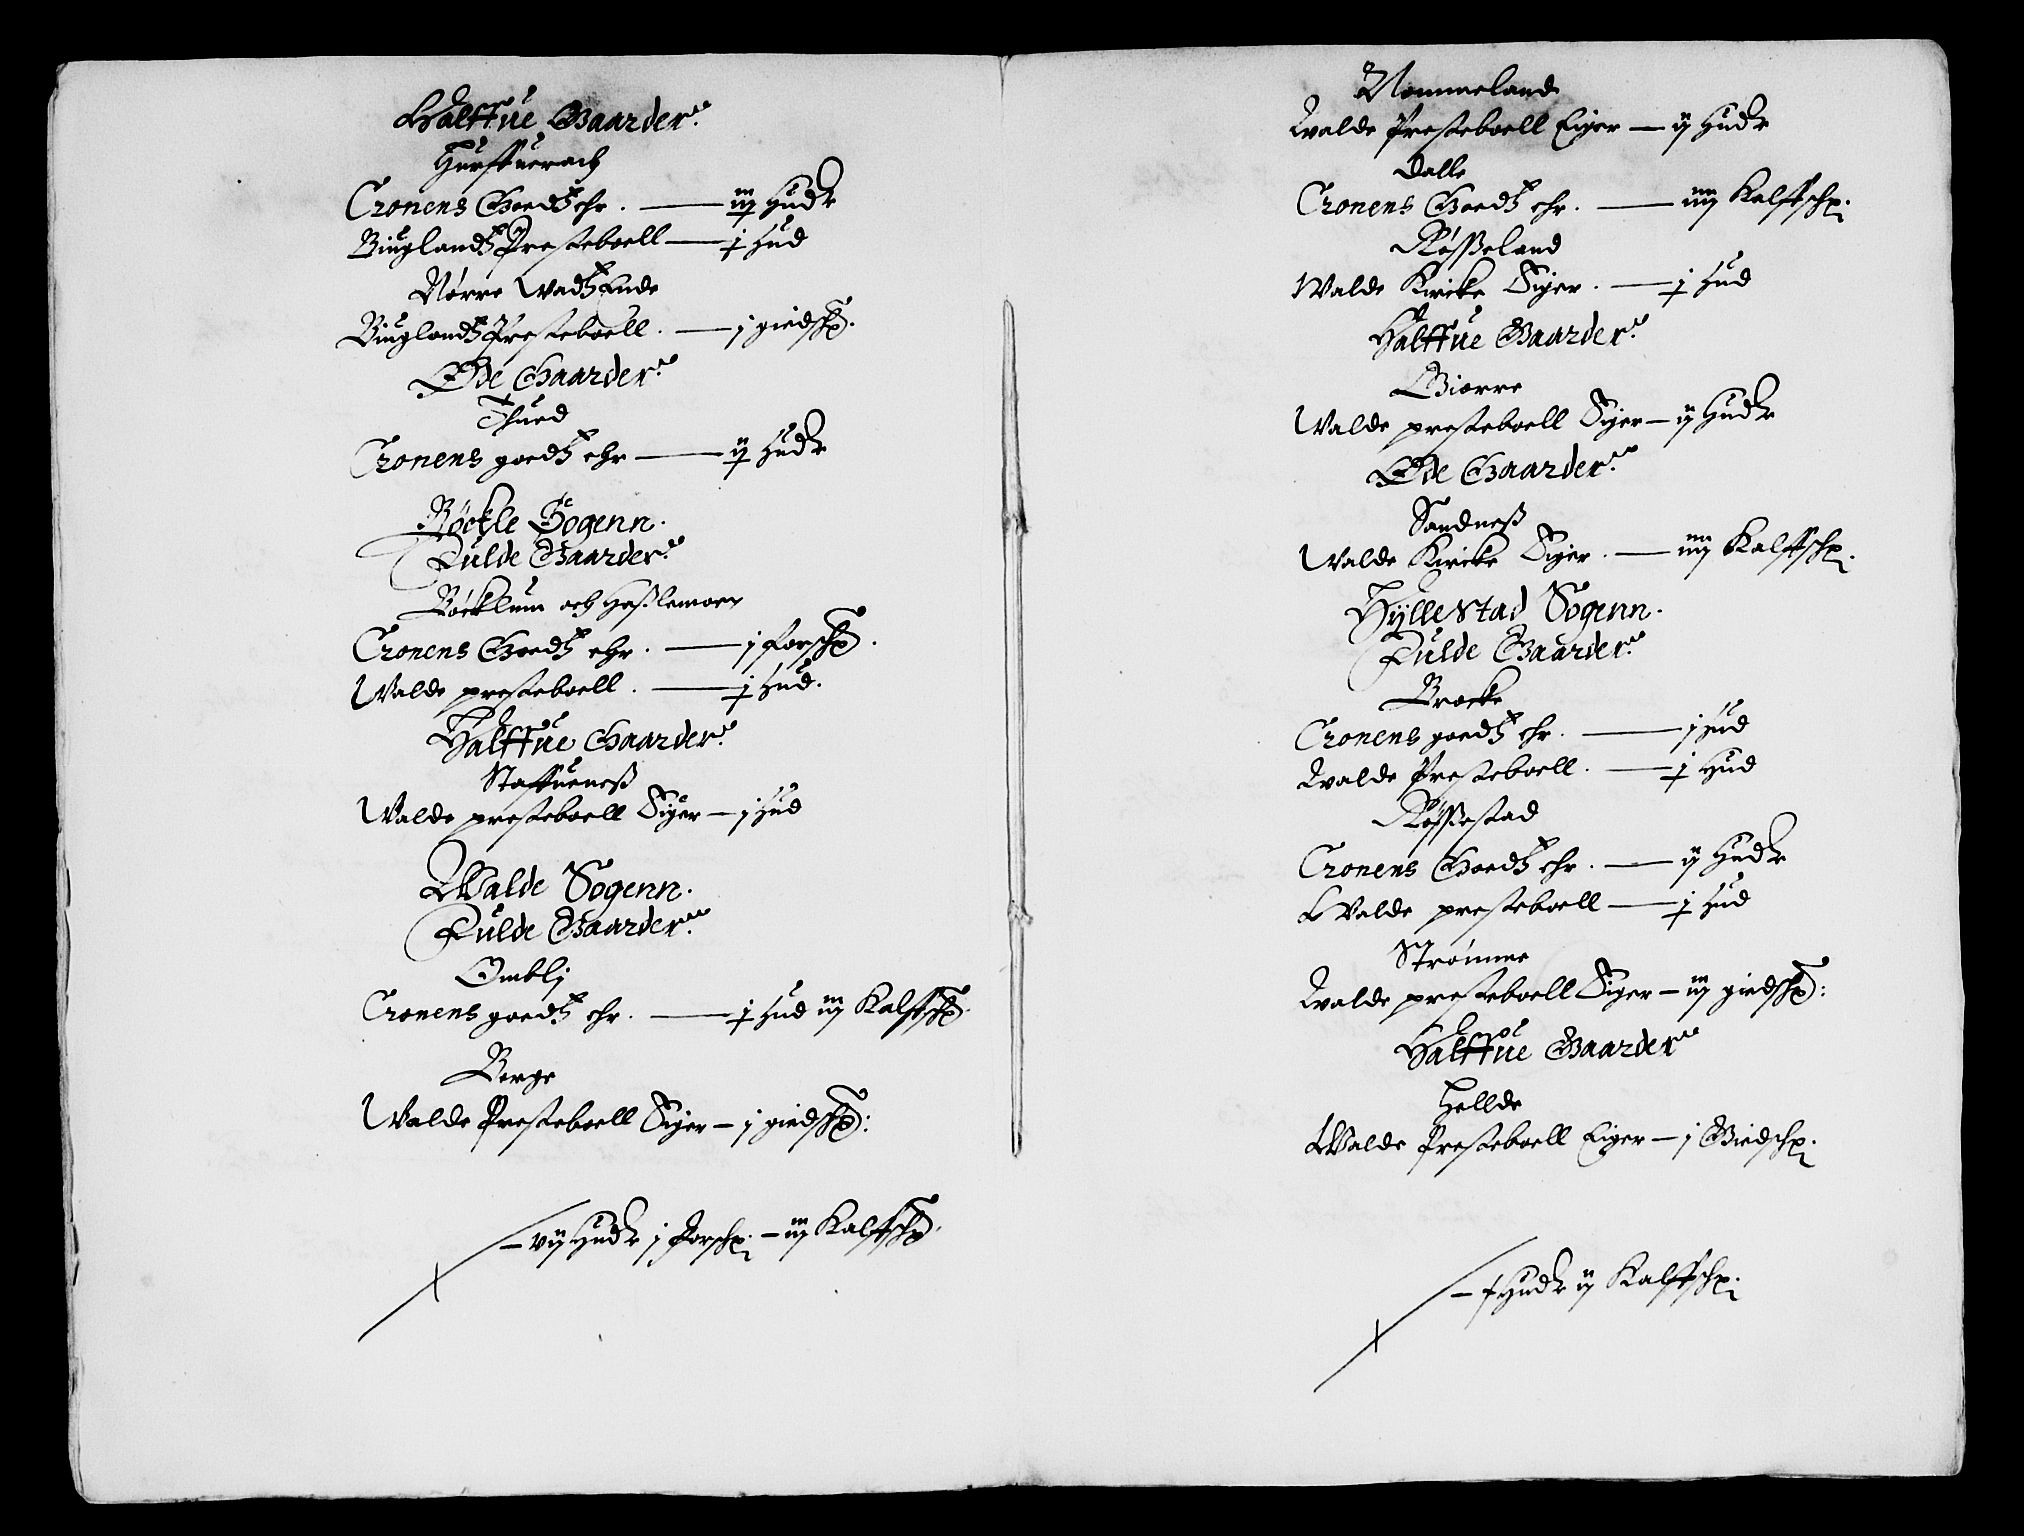 Halffue Gaarder:
Hurffuerack
Cronens Goedtz ehr. — iiij Hudr
Biuglandtz Presteboell — j Hud
Nørre Wadtz Ende
Biuglandtz Presteboell. — j giedsk:
Øde Gaarder:
Thued
Cronens goedtz ehr — ij Hudr
Röckle Sogenn.
Fulde Gaarder:
Röcklum och Haßlemoen
Cronens Goedtz ehr. — j forsch.
Walde presteboell. — j Hud.
Halffue Gaarder:
Staffueneß
Walde presteboell Eiger — j Hud
Walde Sogenn.
Fulde Gaarder:
Omblj
Cronens goedtz ehr. — j Hud iij Kalffsch.
Berge
Walde Presteboell Eiger — j giedsch:
— vij Hudr j Forsch. — iij Kalffsch.
Nommeland
Walde Presteboell Eiger — ij Hudr
Dalle
Cronens Goedtz ehr. — iiij Kalffsch.
Røßeland
Walde Kircke Eiger. — j Hud
Halffue Gaarder:
Biørre
Walde presteboell Eiger — ij Hudr
Øde Gaarder:
Sandneß
Walde Kircke Eiger. — iiij Kalffsch.
Hÿllestad Sogenn.
Fulde Gaarder:
Brocke
Cronens goedtz ehr. — j Hud
Walde Presteboell. — j Hud
Røßestad
Cronens Goedtz ehr. — ij Hudr
Walde presteboell — j Hud
Strömme
Walde presteboell Eiger — iij giedsch:
Halffue Gaarder
Hellde
Walde Presteboell Eiger — j Giedsch.
— Hudr ij Kalffsch.